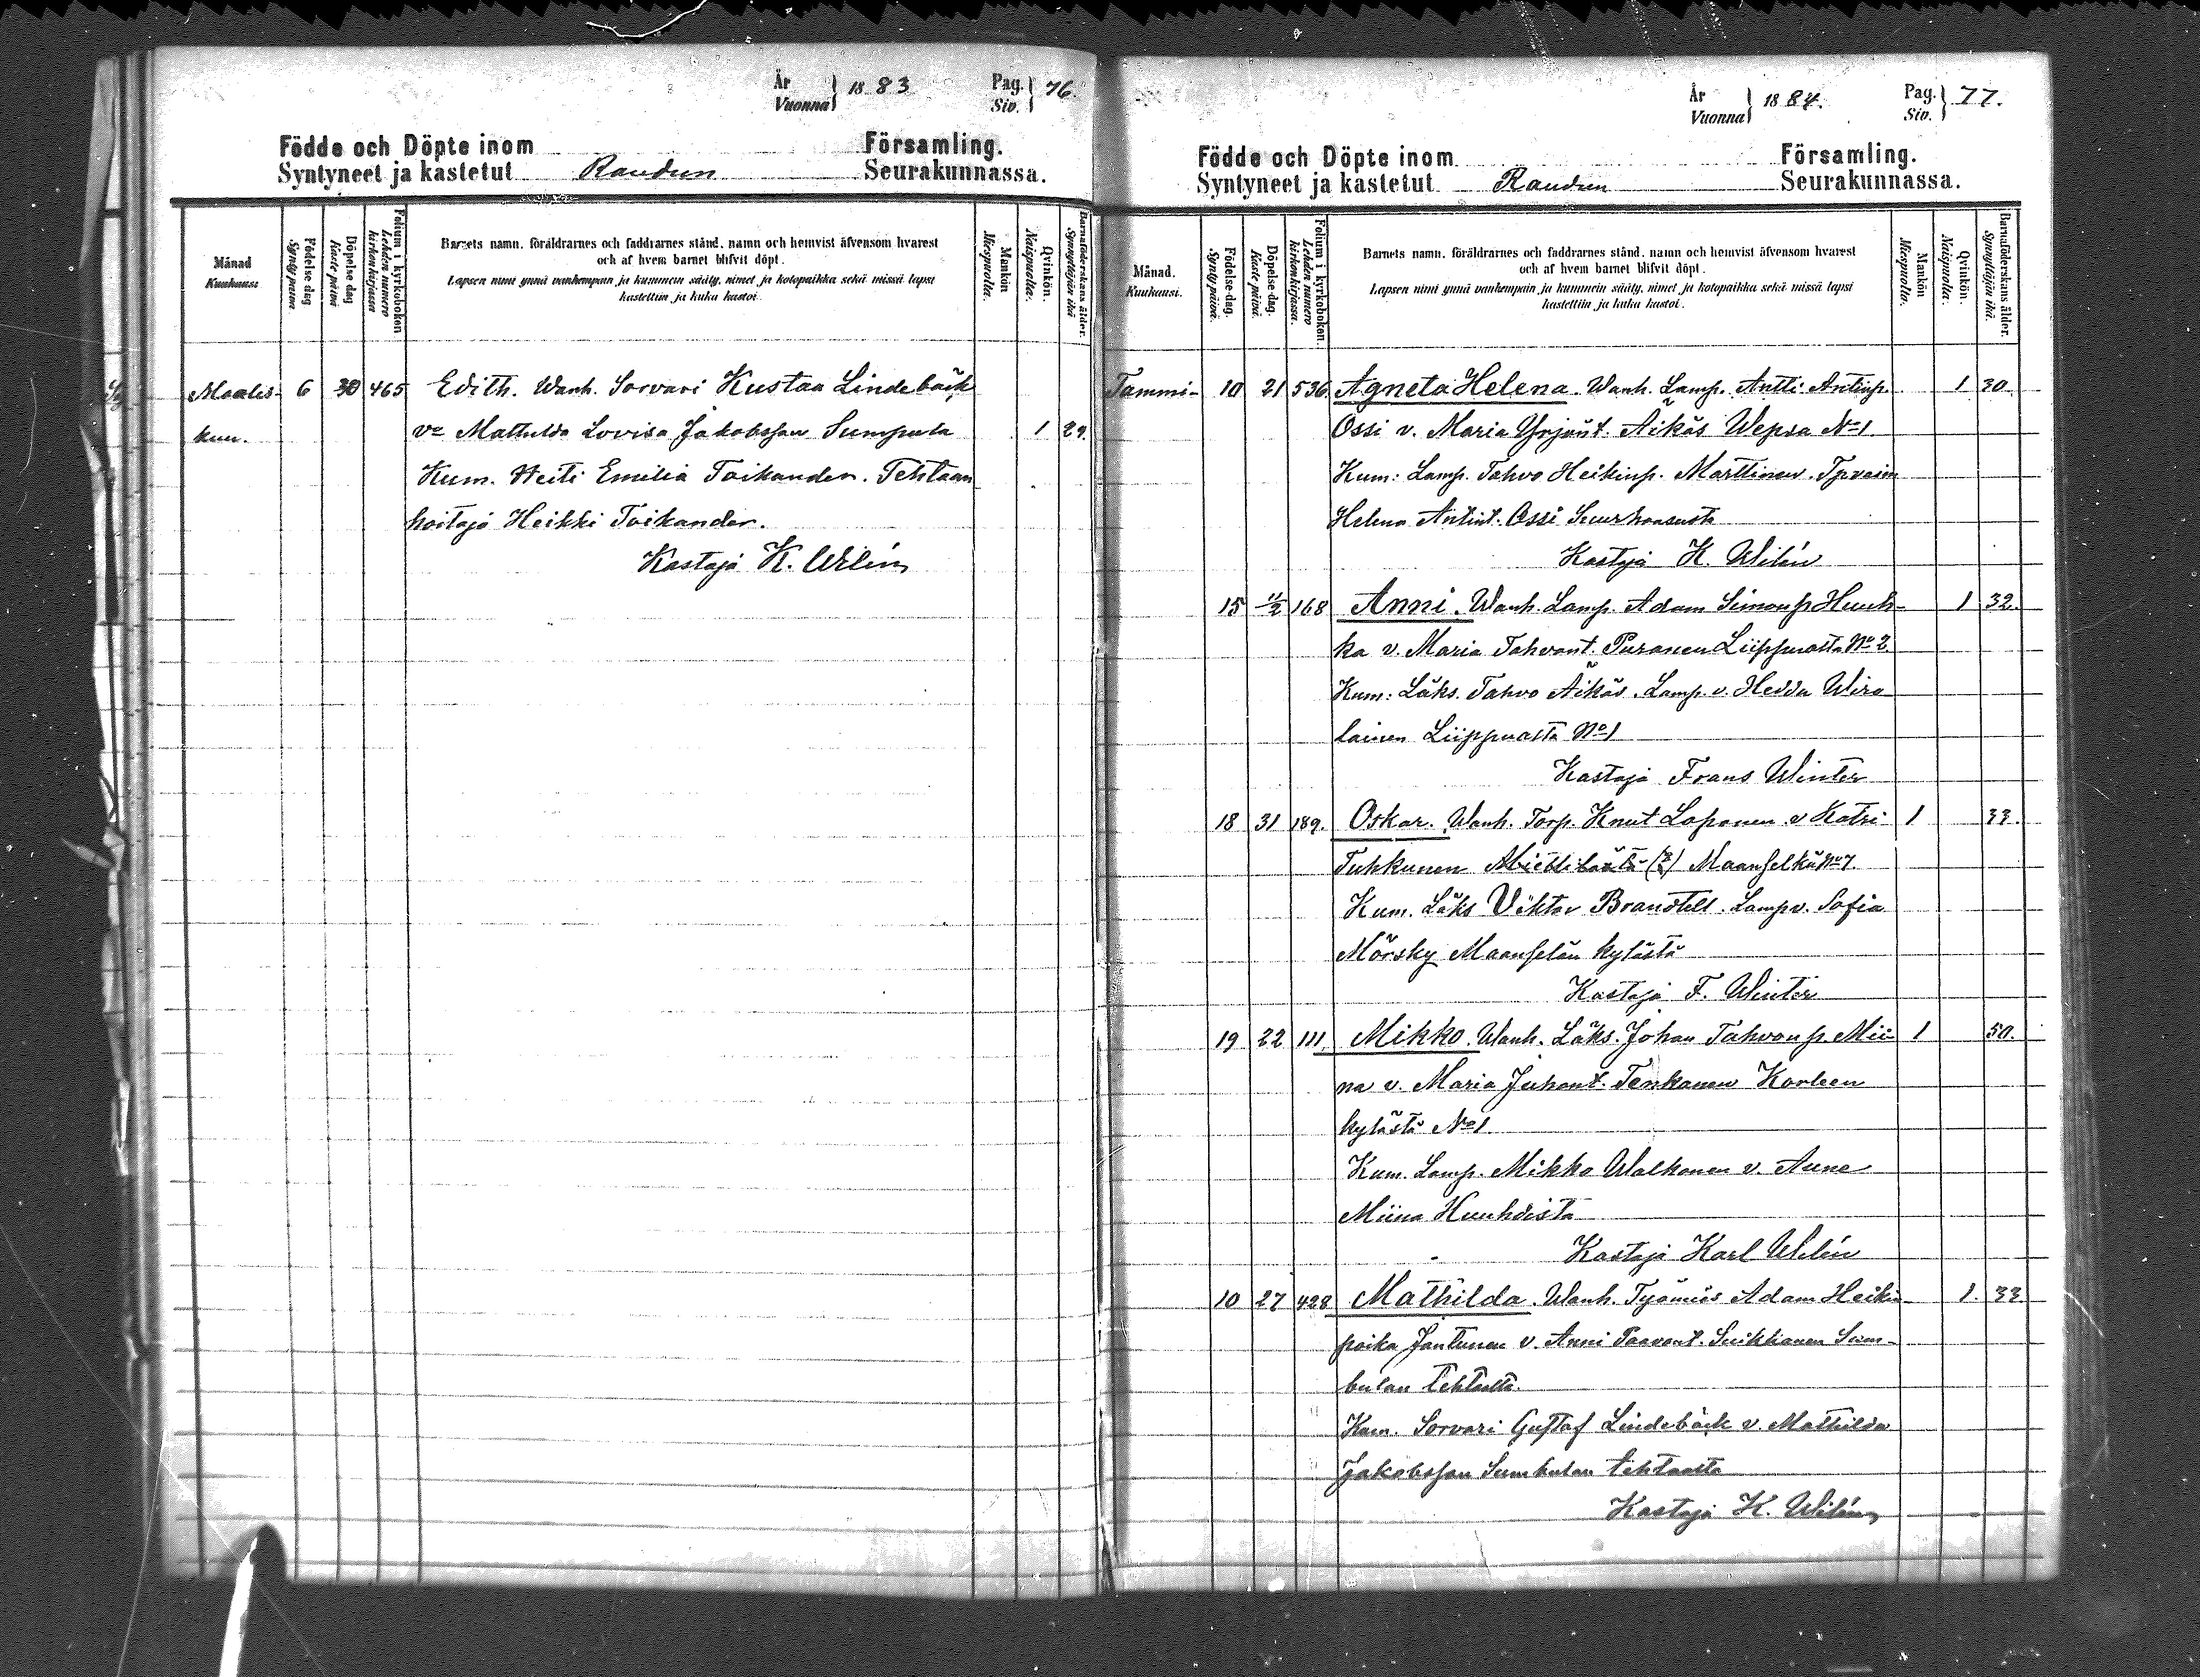 År
Vuonna } 1883
Pag.
Siv. } 76.
Födde och Döpte inom Församling.
Syntyneet ja kastetut Raudun Seurakunnassa.
Månad
Kuukausi
Födelse-dag
Synty päivä
Döpelse dag
Kaste päivä
Folium i kyrkoboken
Lehden numero kirkonkirjassa
Barnets namn, föräldrarnes och faddrarnes stånd, namn och hemvist äfvensom hvarest
och af hvem barnet blifvit döpt.
Lapsen nimi ynnä vanhempain ja kummein sääty, nimet ja kotopaikka sekä missä lapsi
kastettiin ja kuka kastoi.
Mankön
Miespuolta.
Qvinkön.
Naispuolta.
Barnaföderskans ålder.
Synnyttäjän ikä
Maalis- 6 30 465 Edith. Wanh. Sorvari Kustaa Lindebäck
kuu. vo Mathilda Lovisa Jakobsson Sumpula 1 29.
Kum. Neiti Emilia Toikander. Tehtaan
hoitaja Heikki Toikander.
Kastaja K. Wilén
År
Vuonna } 1884.
Pag.
Siv. } 77.
Födde och Döpte inom Församling.
Syntyneet ja kastetut Raudun Seurakunnassa.
Månad.
Kuukausi.
Födelse-dag.
Synty päivä.
Döpelse-dag.
Kaste päivä.
Folium i kyrkoboken.
Lehden numero kirkonkirjassa.
Barnets namn, föräldrarnes och faddrarnes stånd, namn och hemvist äfvensom hvarest
och af hvem barnet blifvit döpt.
Lapsen nimi ynnä vanhempain ja kummein sääty, nimet ja kotopaikka sekä missä lapsi
kastettiin ja kuka kastoi.
Mankön
Miespuolta.
Qvinkön.
Naispuolta.
Barnaföderskans ålder.
Synnyttäjän ikä.
Tammi- 10 21 536. Agneta Helena. Wanh. Lamp. Antti Antinp. 1 30.
Ossi v. Maria Yrjönt. Äikäs Wepsa No 1.
Kum: Lamp. Tahvo Heikinp. Marttinen.
Helena Antint. Ossi Suurhoususta
Kastaja K. Wilén
15 11/2 168 Anni. Wanh. Lamp. Adam Simonp Huuh- 1 32.
ka v. Maria Tahvont. Puranen Liippuasta No 2.
Kum: Läks. Tahvo Äikäs. Lamp. v. Hedda Wiro
lainen Liippuasta No 1
Kastaja Frans Winter
18 31 189. Oskar. Wanh. Torp. Knut Loponen v Katri 1 33.
Tuhkunen Maanselkä No 7.
Kum. Läks Viktor Brandtell. Lamp v. Sofia
Mörsky Maanselän kylästä
Kastaja F. Winter
19 22 111. Mikko. Wanh. Läks. Johan Tahvonp. Mii- 1 50.
na v. Maria Juhont. Tenkanen Korleen
kylästä No 1.
Kum. Lamp. Mikko Walkonen v. Anne
Miina Huuhdista
Kastaja Karl Wilén
10 27 428 Mathilda. Wanh. Työmies Adam Heikin- 1. 33
poika Jantunen v. Anni Paavont. Suikkanen Sum-
bulan tehtaalta.
Kum. Sorvari Gustaf Lindebäck v. Mathilda
Jakobsson Sumbulan tehtaalta
Kastaja K. Wilén